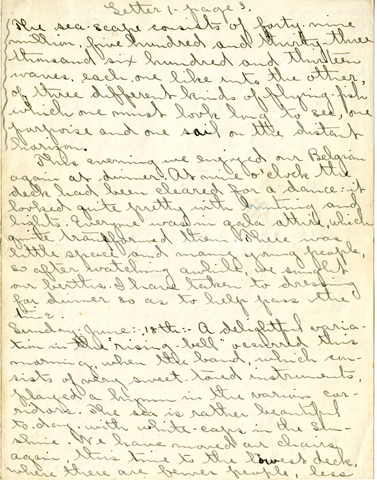 Letter 1 - page 3.
The sea-scape consists of forty-nine
million, five hundred and thirty three
thousand six hundred and thirteen
waves, each one like unto the other,
of three different kinds of flying-fish
which one must look long to see, one
porpoise and one sail on the distant
horizon.
This evening we enjoyed our Belgian
again at dinner. At nine o'clock the
deck had been cleared for a dance: it
looked quite pretty with bunting and
lights. Everyone was in gala attire, which
quite transformed them. There was
little space and many young people,
so after watching awhile, we sought
our births. I have taken to dressing
for dinner so as to help pass the
time.
Sunday, June: 18th: A delightful varia-
tion in the "rising bell" occurred this
morning, when the band, which con-
sists of very sweet toned instruments,
played a hymn in the various cor-
ridors. The sea is rather beautiful
to-day, with white-caps in the sun-
shine. We have moved our chairs,
again this time to the lowest deck,
where there are fewer people, less